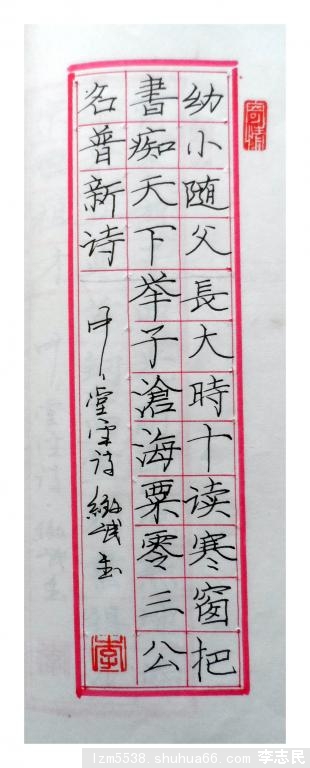 幼小随父長大時十读寒窗把
書痴天下举子滄海粟零三公
名普新诗
寄情
李
lzm5538.shuhua66.com 李志民